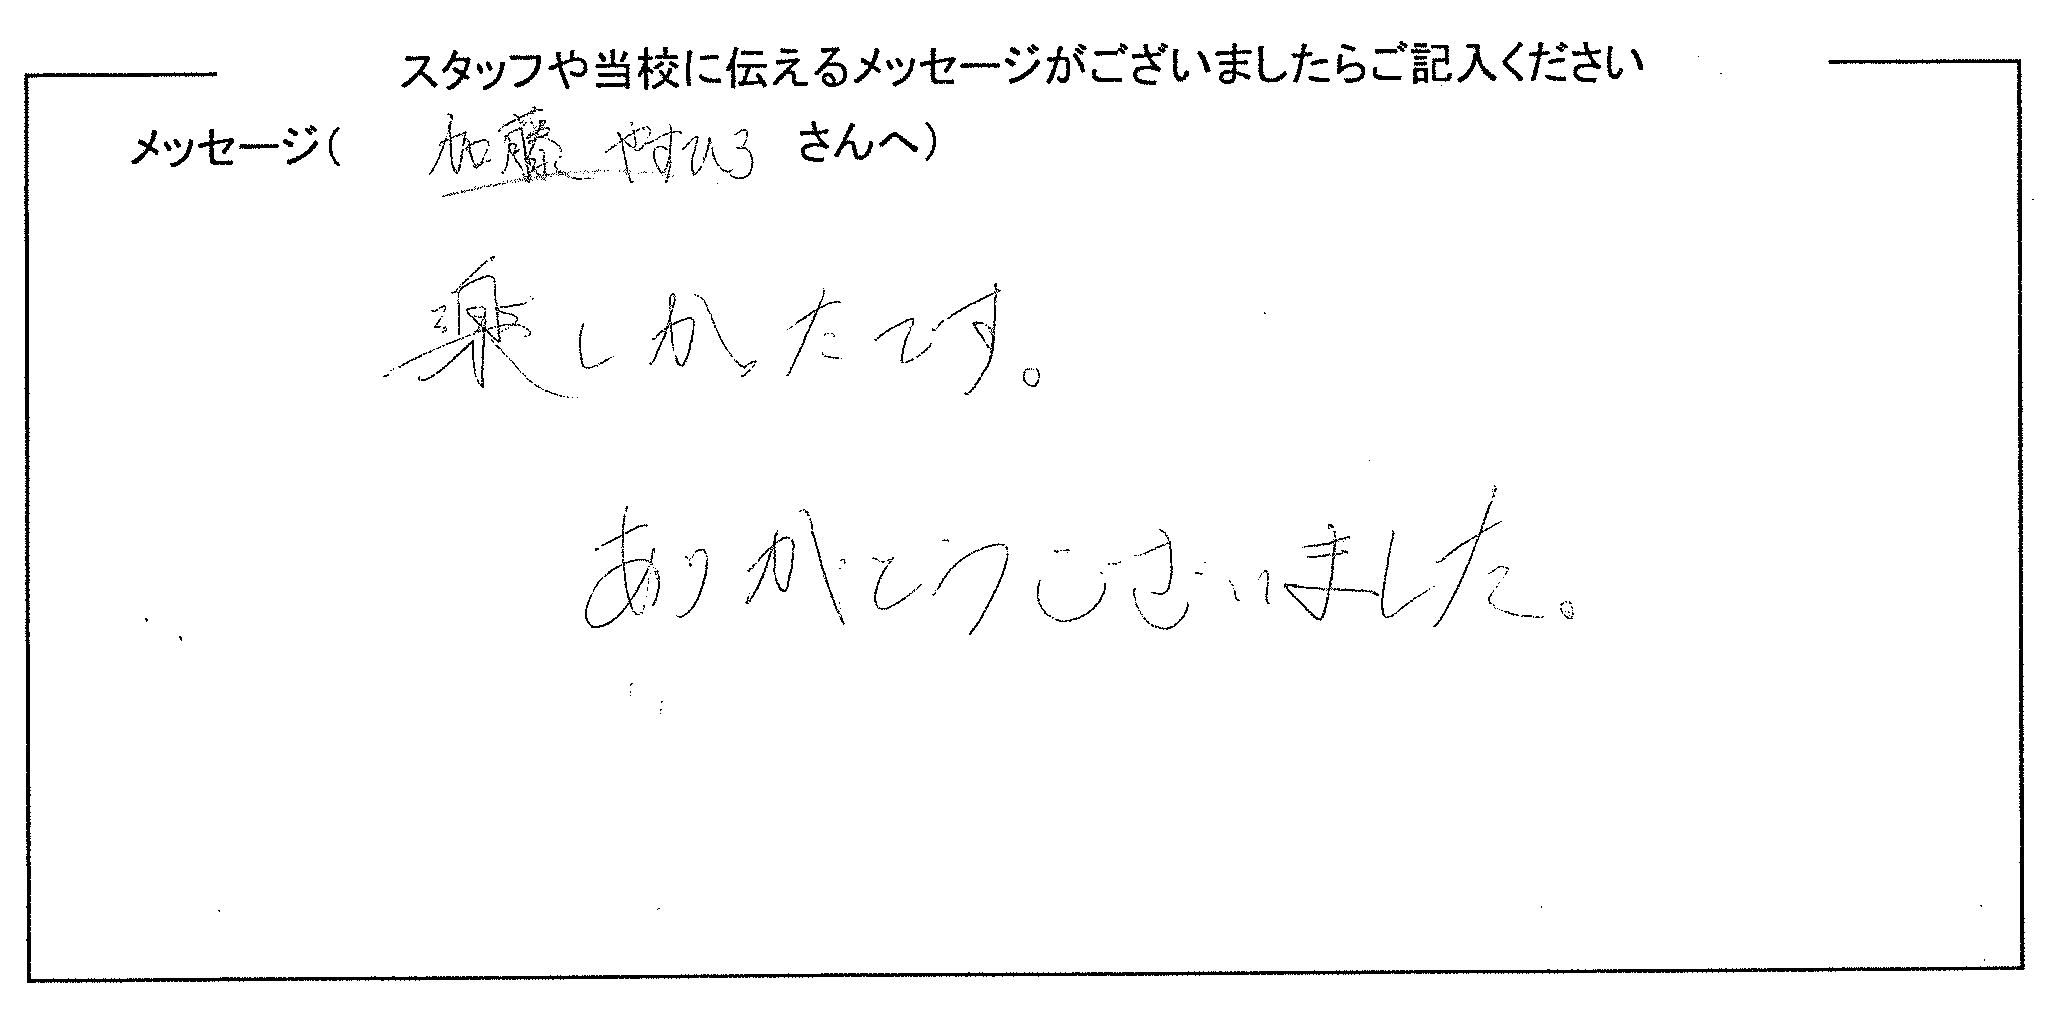 スタッフや当校に伝えるメッセージがございましたらご記入ください
メッセージ( 加藤 やすひろ さんへ)
楽しかったです。
ありがとうございました。